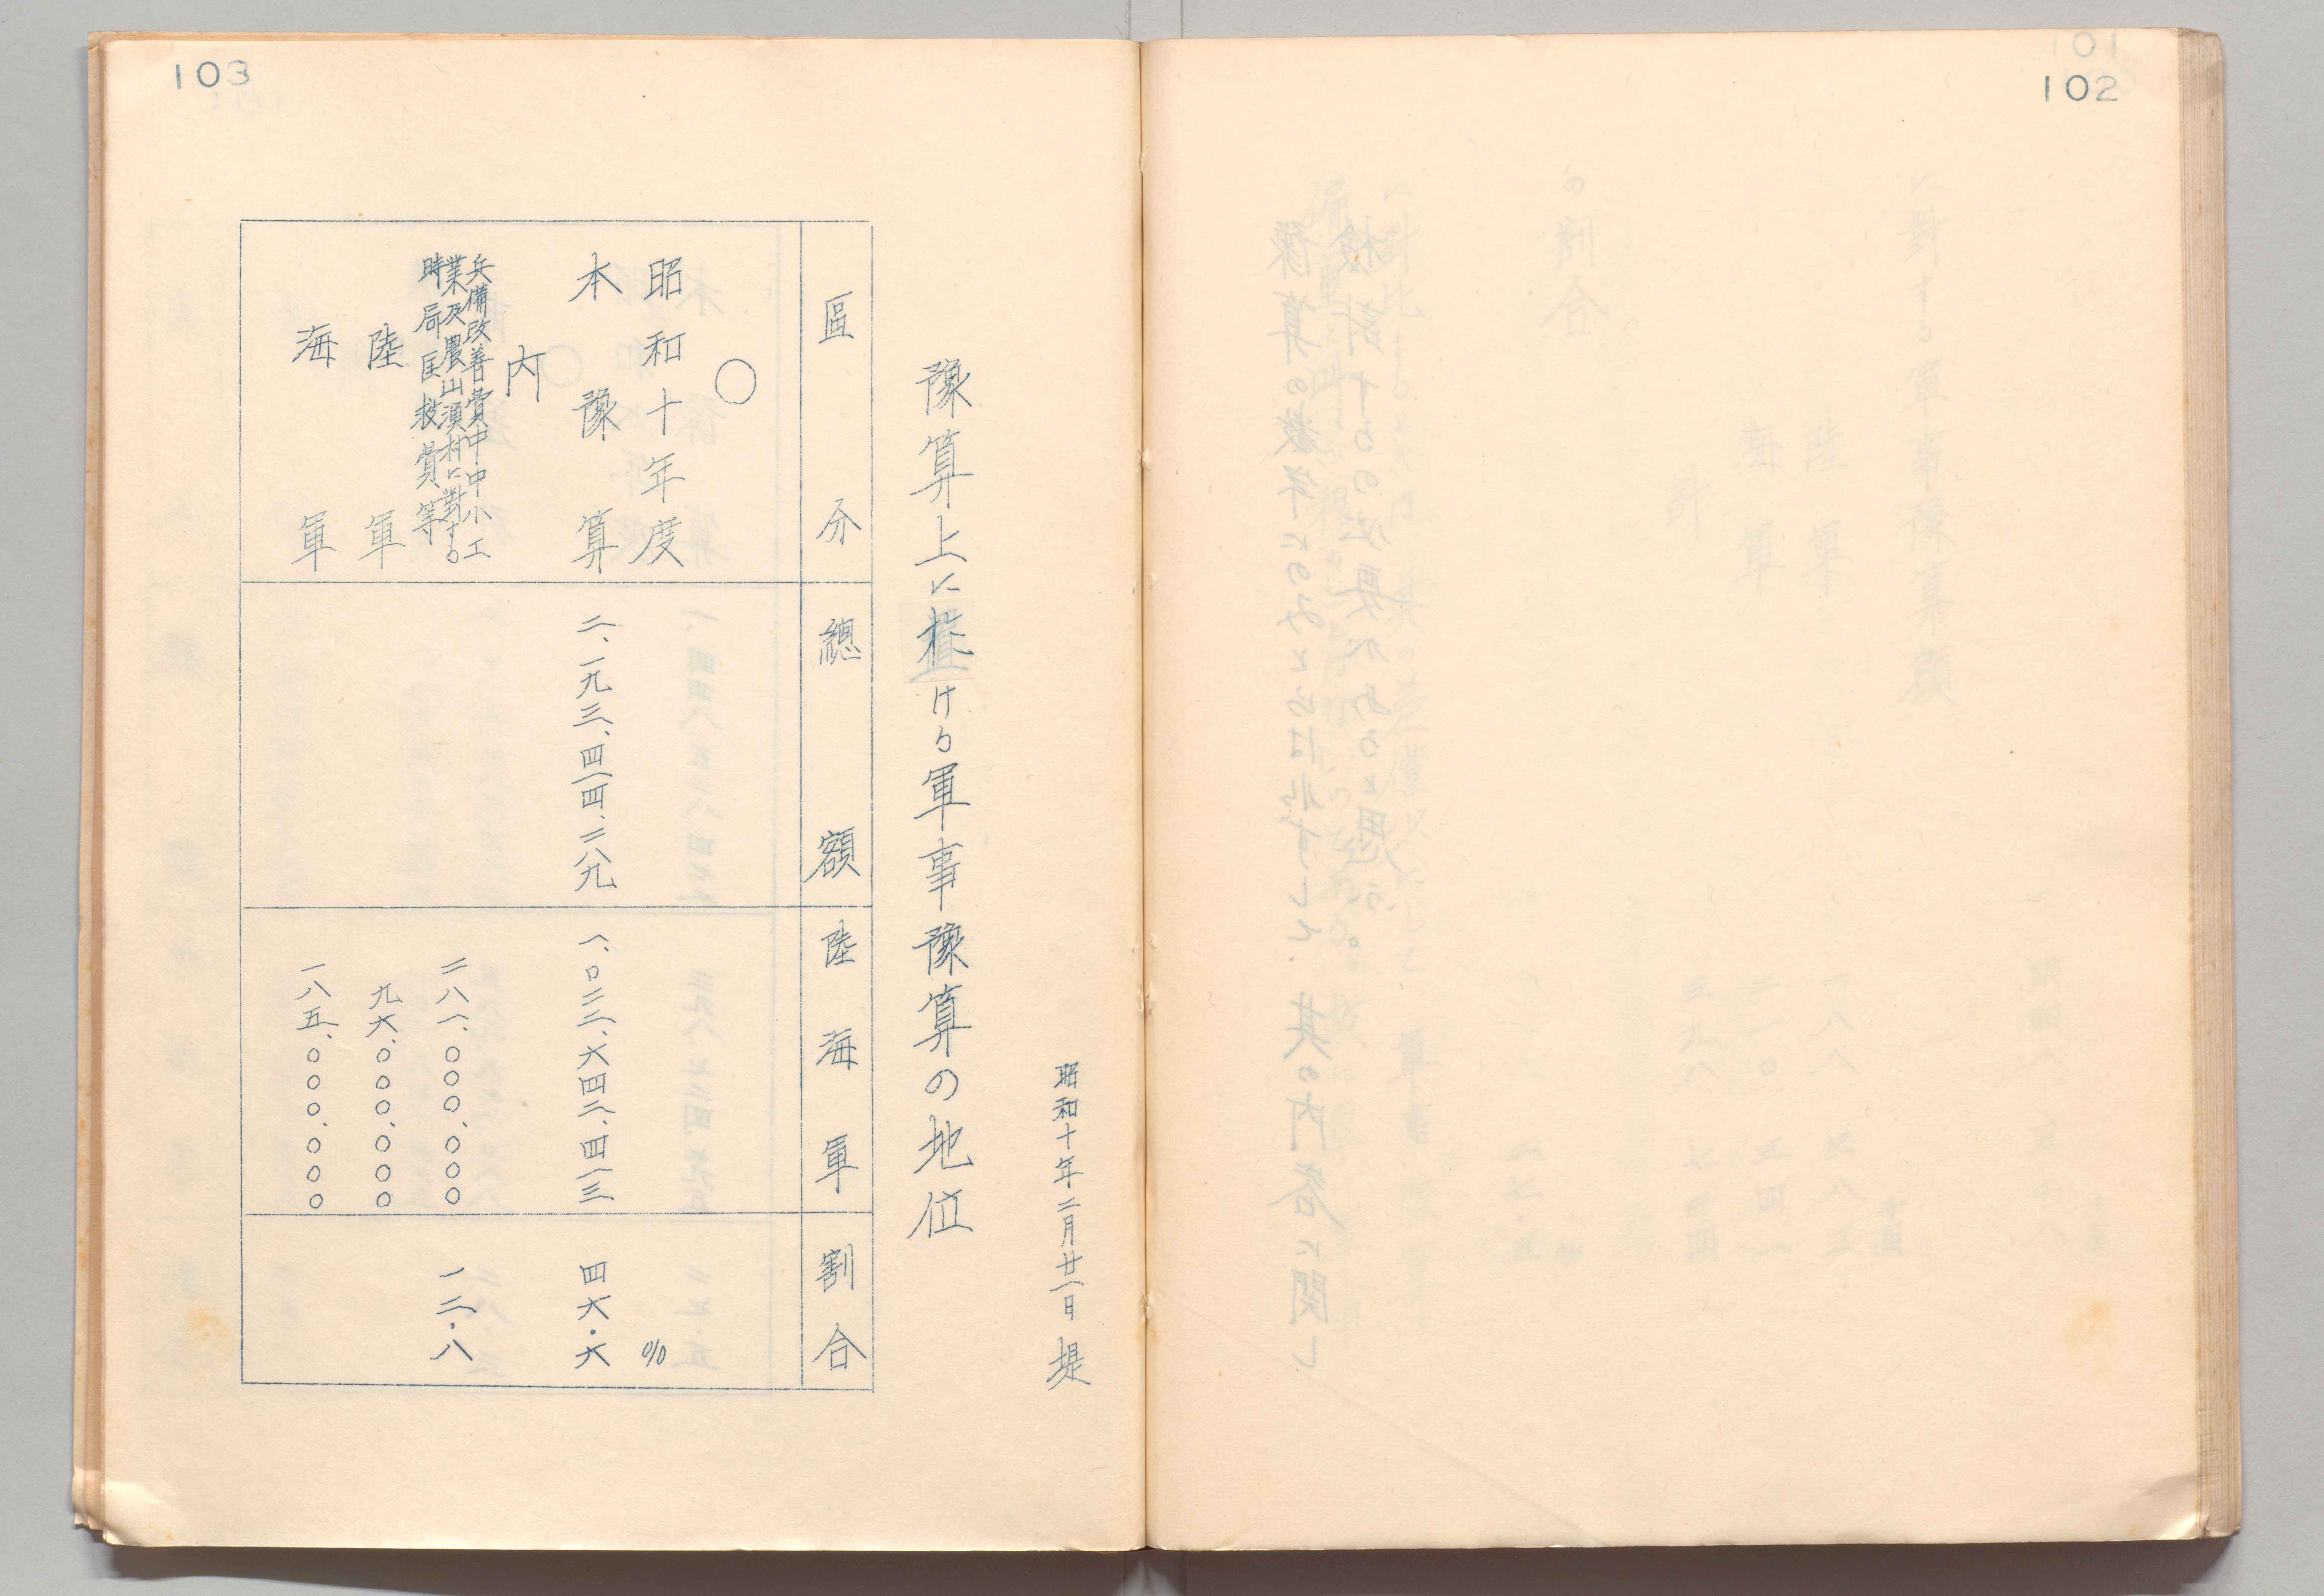 102
103
昭和十年二月廿一日 堤
豫算上に於ける軍事豫算の地位
區分 總額 陸海軍 割合
○
昭和十年度 %
本豫算 二、一九三、四一四、二八九 一、〇二二、六四二、四一三 四六・六
內
兵備改善費中中小工
業及農山漁村に對する 二八一、〇〇〇、〇〇〇 一二・八
時局匡救費等
陸軍 九六、〇〇〇、〇〇〇
海軍 一八五、〇〇〇、〇〇〇